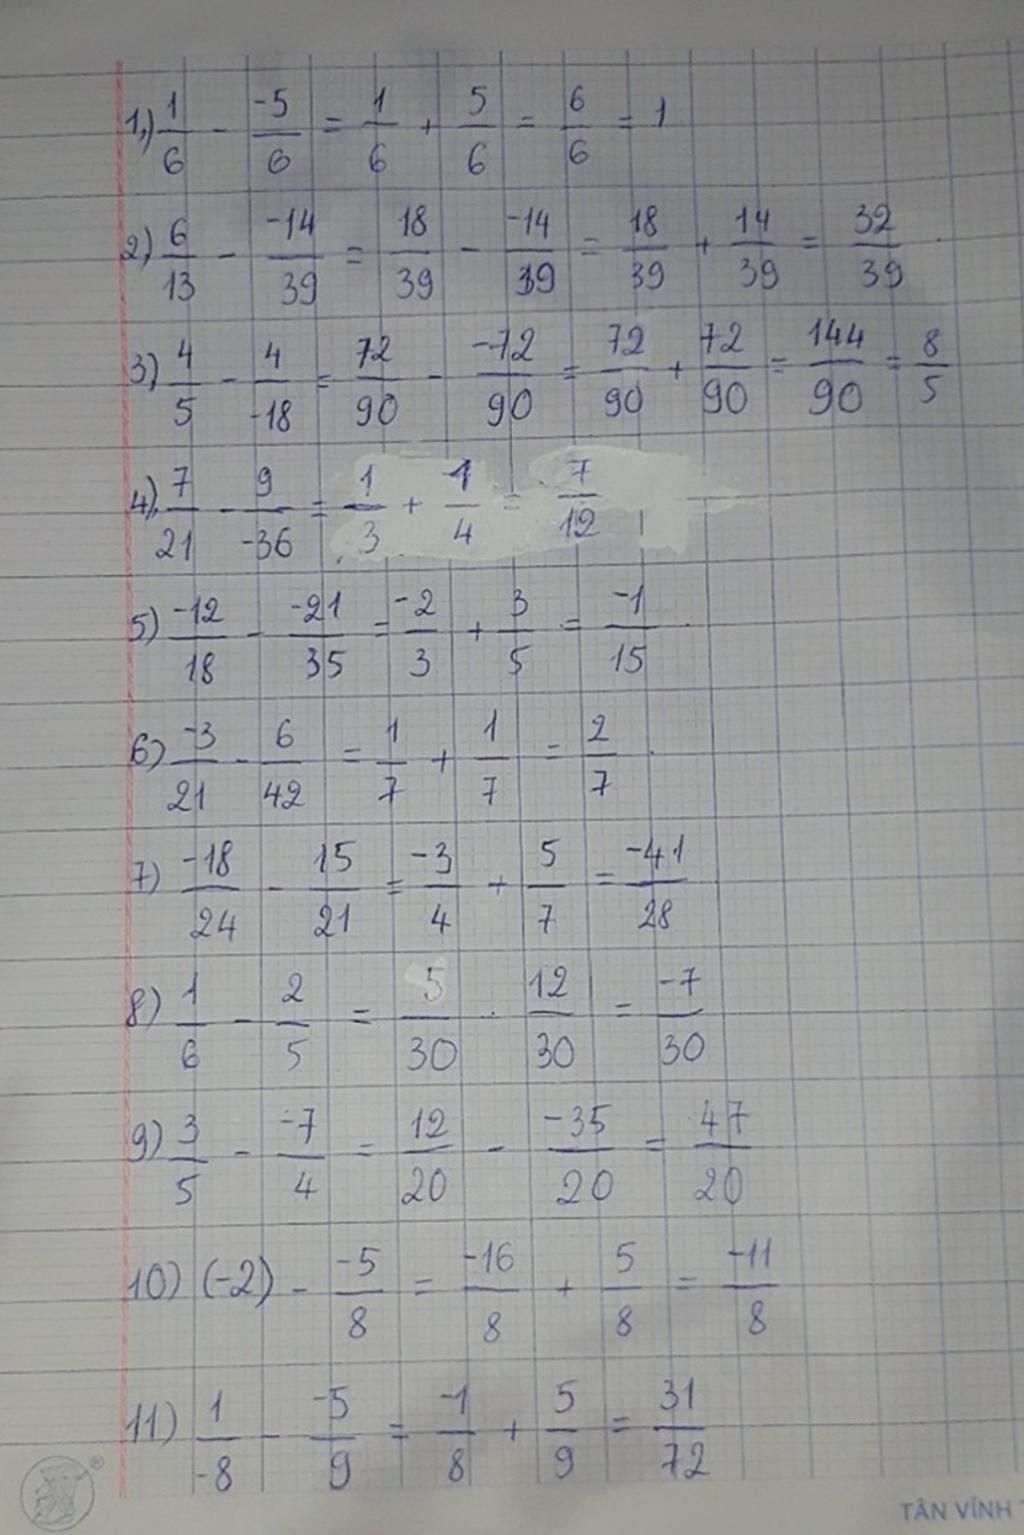 1,) 1/6 - -5/6 = 1/6 + 5/6 = 6/6 = 1
2) 6/13 - -14/39 = 18/39 - -14/39 = 18/39 + 14/39 = 32/39.
3) 4/5 - 4/-18 = 72/90 - -72/90 = 72/90 + 72/90 = 144/90 = 8/5
4) 7/21 - 9/-36 = 1/3 + 1/4 = 7/12
5) -12/18 - -21/35 = -2/3 + 3/5 = -1/15.
6) -3/21 - 6/42 = 1/7 + 1/7 = 2/7.
7) -18/24 - 15/21 = -3/4 + 5/7 = -41/28
8) 1/6 - 2/5 = 5/30 - 12/30 = -7/30
9) 3/5 - -7/4 = 12/20 - -35/20 = 47/20
10) (-2) - -5/8 = -16/8 + 5/8 = -11/8
11) 1/-8 - -5/9 = -1/8 + 5/9 = 31/72
®
TÂN VĨNH